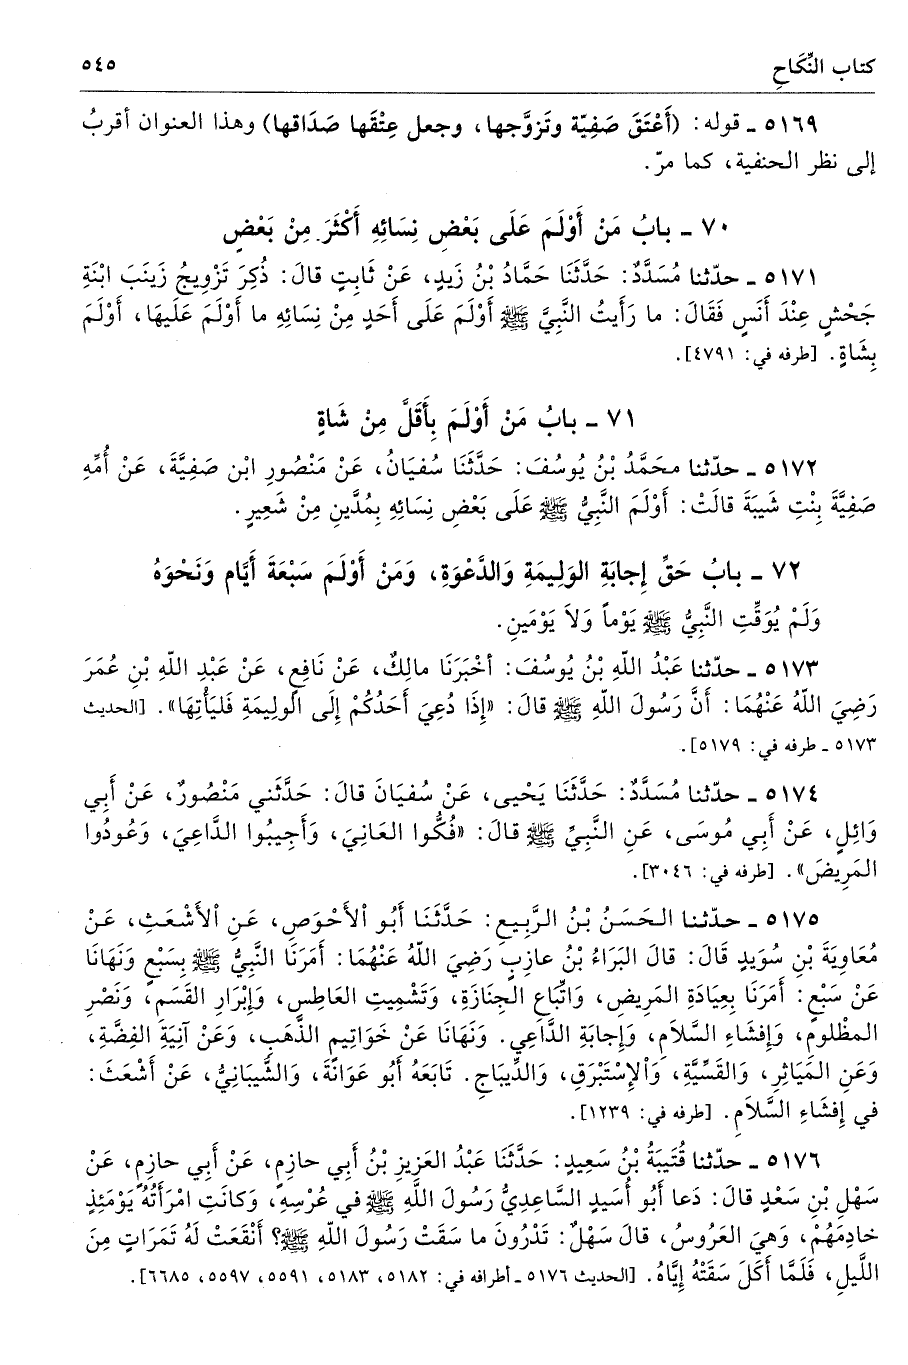 كتاب النِّكَاحِ ٥٤٥
٥١٦٩ ـ قوله: (أَعْتَقَ صَفِيّة وتَزوَّجها، وجعل عِتْقَها صَدَاقها) وهذا العنوان أقربُ
إلى نظر الحنفية، كما مرّ.
٧٠ ـ بابُ مَنْ أَوْلَمَ عَلَى بَعْضِ نِسَائِهِ أَكْثَرَ مِنْ بَعْضٍ
٥١٧١ ـ حدّثنا مُسَدَّدٌ: حَدَّثَنَا حَمَّادُ بْنُ زَيدٍ، عَنْ ثَابِتٍ قالَ: ذُكِرَ تَزْوِيجُ زَينَبَ ابْنَةِ
جَحْشٍ عِنْدَ أَنَسٍ فَقَالَ: ما رَأَيتُ النَّبِيَّ ﷺ أَوْلَمَ عَلَى أَحَدٍ مِنْ نِسَائِهِ ما أَوْلَمَ عَلَيهَا، أَوْلَمَ
بِشَاةٍ. [طرفه في: ٤٧٩١].
٧١ ـ بابُ مَنْ أَوْلَمَ بِأَقَلَّ مِنْ شَاةٍ
٥١٧٢ ـ حدّثنا محَمَّدُ بْنُ يُوسُفَ: حَدَّثَنَا سُفيَانُ، عَنْ مَنْصُورِ ابْن صَفِيَّةَ، عَنْ أُمِّهِ
صَفِيَّةَ بِنْتِ شَيبَةَ قالَتْ: أَوْلَمَ النَّبِيُّ ﷺ عَلَى بَعْضِ نِسَائِهِ بِمُدَّينِ مِنْ شَعِيرٍ.
٧٢ ـ بابُ حَقِّ إِجابَةِ الوَلِيمَةِ وَالدَّعْوَةِ، وَمَنْ أَوْلَمَ سَبْعَةَ أَيَّام وَنَحْوَهُ
وَلَمْ يُوَقِّتِ النَّبِيُّ ﷺ يَوْماً وَلاَ يَوْمَينِ.
٥١٧٣ ـ حدّثنا عَبْدُ اللّهِ بْنُ يُوسُفَ: أَخْبَرَنَا مالِكٌ، عَنْ نَافِعٍ، عَنْ عَبْدِ اللّهِ بْنِ عُمَرَ
رَضِيَ اللّهُ عَنْهُمَا: أَنَّ رَسُولَ اللّهِ ﷺ قالَ: «إِذَا دُعِيَ أَحَدُكُمْ إِلَى الوَلِيمَةِ فَليَأْتِهَا». [الحديث
٥١٧٣ ـ طرفه في: ٥١٧٩].
٥١٧٤ ـ حدّثنا مُسَدَّدٌ: حَدَّثَنَا يَحْيى، عَنْ سُفيَانَ قالَ: حَدَّثَني مَنْصُورٌ، عَنْ أَبِي
وَائِلٍ، عَنْ أَبِي مُوسَى، عَنِ النَّبِيِّ ﷺ قالَ: «فُكُّوا العَانِيَ، وَأَجِيبُوا الدَّاعِيَ، وَعُودُوا
المَرِيضَ». [طرفه في: ٣٠٤٦].
٥١٧٥ ـ حدّثنا الحَسَنُ بْنُ الرَّبِيعِ: حَدَّثَنَا أَبُو الأَحْوَصِ، عَنِ الأَشْعَثِ، عَنْ
مُعَاوِيَةَ بْنِ سُوَيدٍ قَالَ: قالَ البَرَاءُ بْنُ عازِبٍ رَضِيَ اللّهُ عَنْهُمَا: أَمَرَنَا النَّبِيُّ ﷺ بِسَبْعٍ وَنَهَانَا
عَنْ سَبْعٍ: أَمَرَنَا بِعِيَادَةِ المَرِيضِ، وَاتِّبَاعِ الجِنَازَةِ، وَتَشْمِيتِ العَاطِسِ، وَإِبْرَارِ القَسَمِ، وَنَصْرِ
المظْلومِ، وَإِفشَاءِ السَّلاَمِ، وَإِجابَةِ الدَّاعِي. وَنَهَانَا عَنْ خَوَاتِيمِ الذَّهَبِ، وَعَنْ آنِيَةِ الفِضَّةِ،
وَعَنِ المَيَاثِرِ، وَالقَسِّيَّةِ، وَالإِسْتَبْرَقِ، وَالدِّيباجِ. تَابَعَهُ أَبُو عَوَانَةَ، وَالشَّيبَانِيُّ، عَنْ أَشْعَثَ:
في إِفشَاءِ السَّلاَمِ. [طرفه في: ١٢٣٩].
٥١٧٦ ـ حدّثنا قُتَيبَةُ بْنُ سَعِيدٍ: حَدَّثَنَا عَبْدُ العَزِيزِ بْنُ أَبِي حازِمٍ، عَنْ أَبِي حازِمٍ، عَنْ
سَهْلِ بْنِ سَعْدٍ قالَ: دَعا أَبُو أُسَيدٍ السَّاعِدِيُّ رَسُولَ اللّهِ ﷺ في عُرْسِهِ، وَكانَتِ امْرَأَتُهُ يَوْمَئِذٍ
خادِمَهُمْ، وَهِيَ العَرُوسُ، قالَ سَهْلٌ: تَدْرُونَ ما سَقَتْ رَسُولَ اللّهِ ﷺ؟ أَنْقَعَتْ لَهُ تَمَرَاتٍ مِنَ
اللَّيلِ، فَلَمَّا أَكَلَ سَقَتْهُ إِيَّاهُ. [الحديث ٥١٧٦ ـ أطرافه في: ٥١٨٢، ٥١٨٣، ٥٥٩١، ٥٥٩٧، ٦٦٨٥].